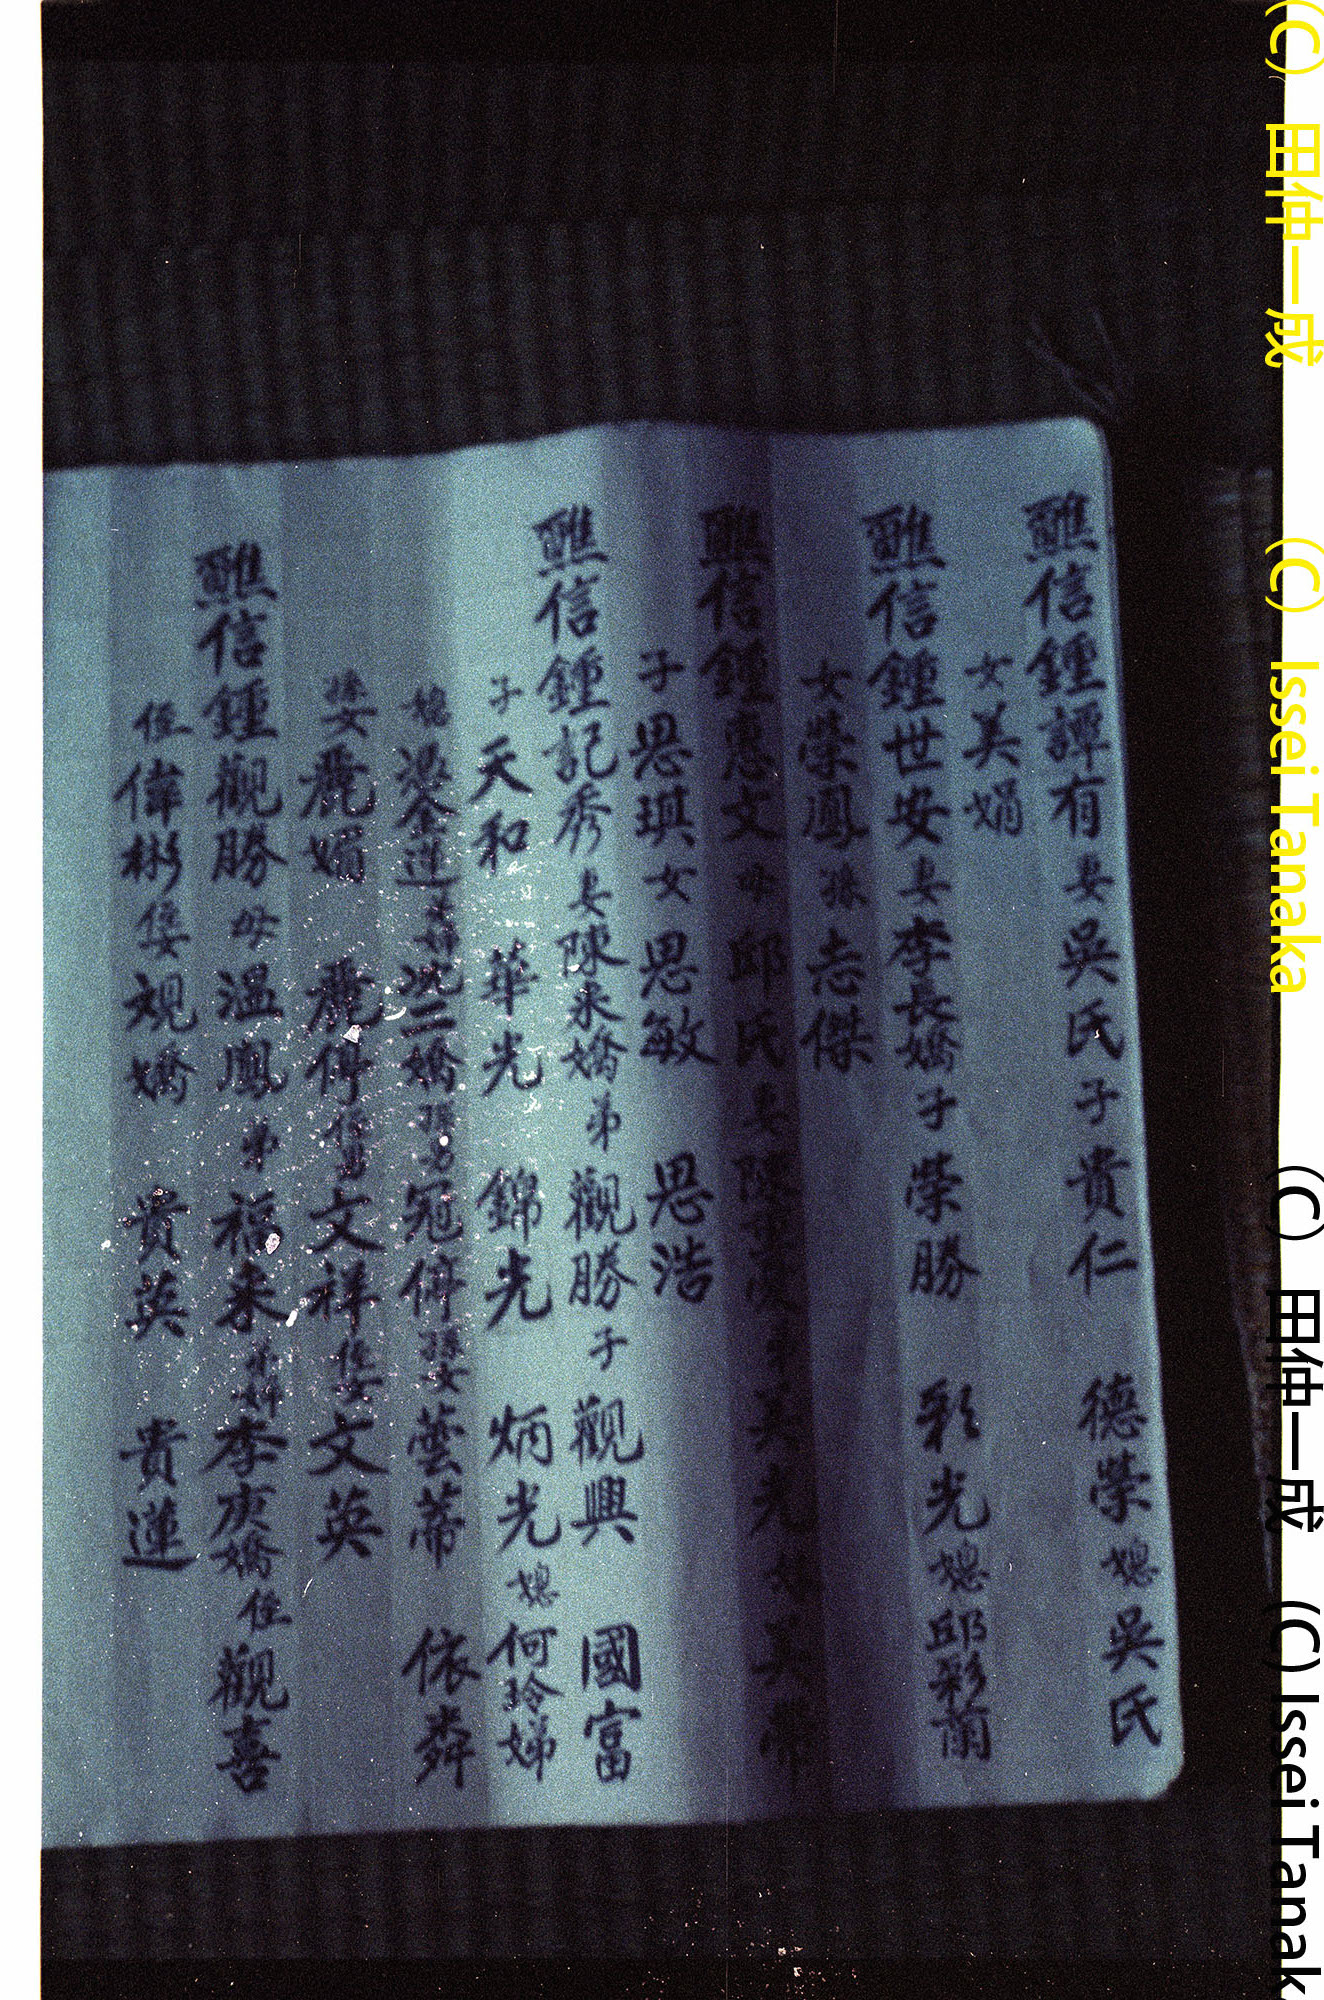 醮信鍾譚有妻吳氏子貴仁 德榮媳吳氏
女美娟
醮信鍾世安妻李長嬌子榮勝 彩光媳邱彩蘭
女榮鳳孫志傑
醮信鍾惠文母邱氏妻陳
子思琪女思敏 思浩
醮信鍾記秀妻陳來嬌弟觀勝子觀興 國富
子天和 華光 錦光 炳光媳何玲娣
媳梁金蓮 沈二嬌孫男冠俦孫女芸蒂 依舜
孫女麗媚 麗俦侄男文祥侄女文英
醮信鍾觀勝母溫鳳弟福來 李庚嬌侄觀喜
侄偉彬侄女观嬌 貴英 貴蓮
(C) 田仲一成 (C) Issei Tanaka (C) 田仲一成 (C) Issei Tanak